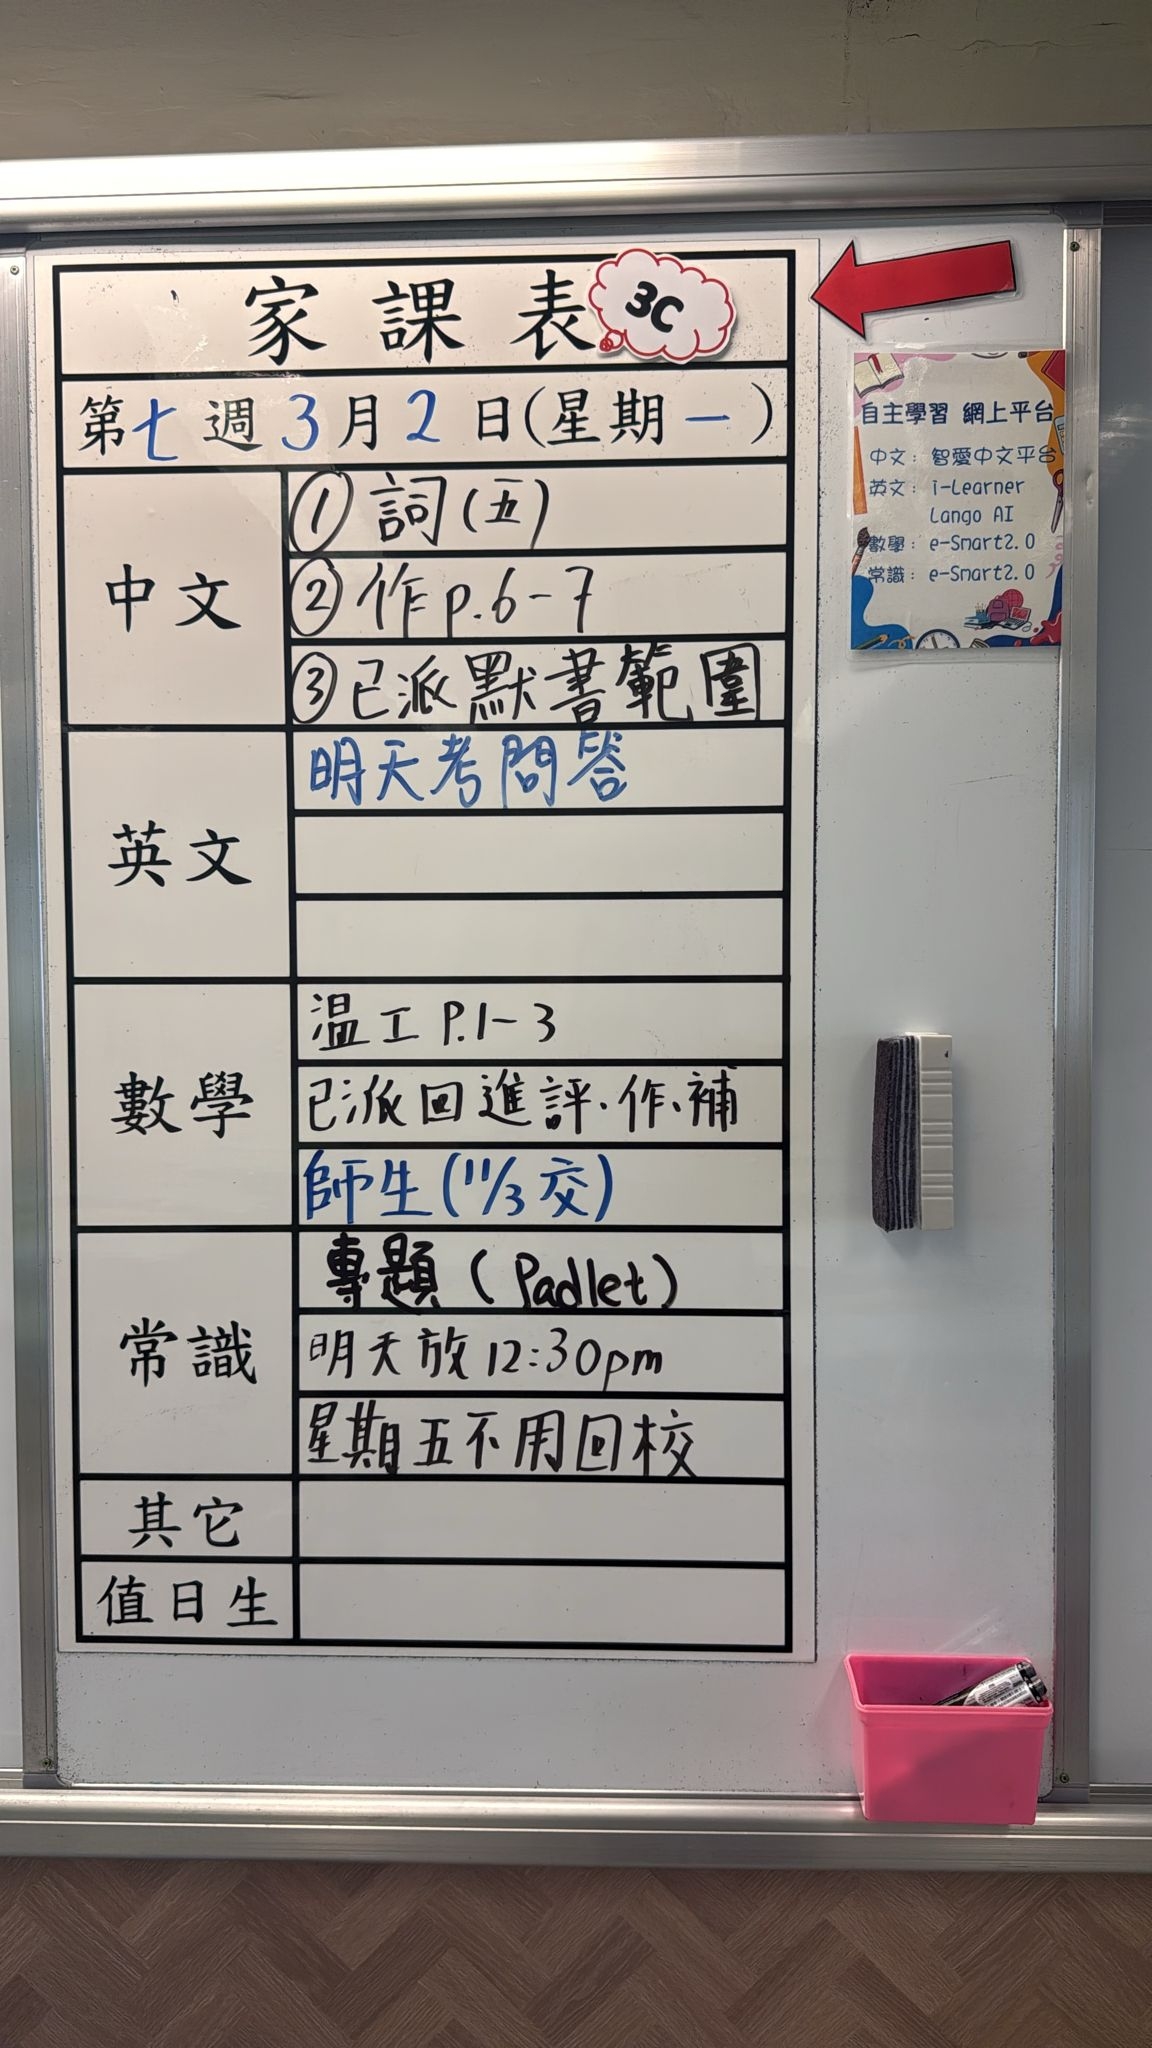 家課表 3C
第七週3月2日(星期一)
中文
① 詞(五)
② 作p.6-7
③已派默書範圍
英文
明天考問答
數學
溫工P.1-3
已派回進評、作、補
師生(11/3交)
常識
專題(Padlet)
明天放12:30pm
星期五不用回校
其它
值日生
自主學習 網上平台
中文：智愛中文平台
英文：i-Learner
Lango AI
數學：e-Smart2.0
常識：e-Smart2.0